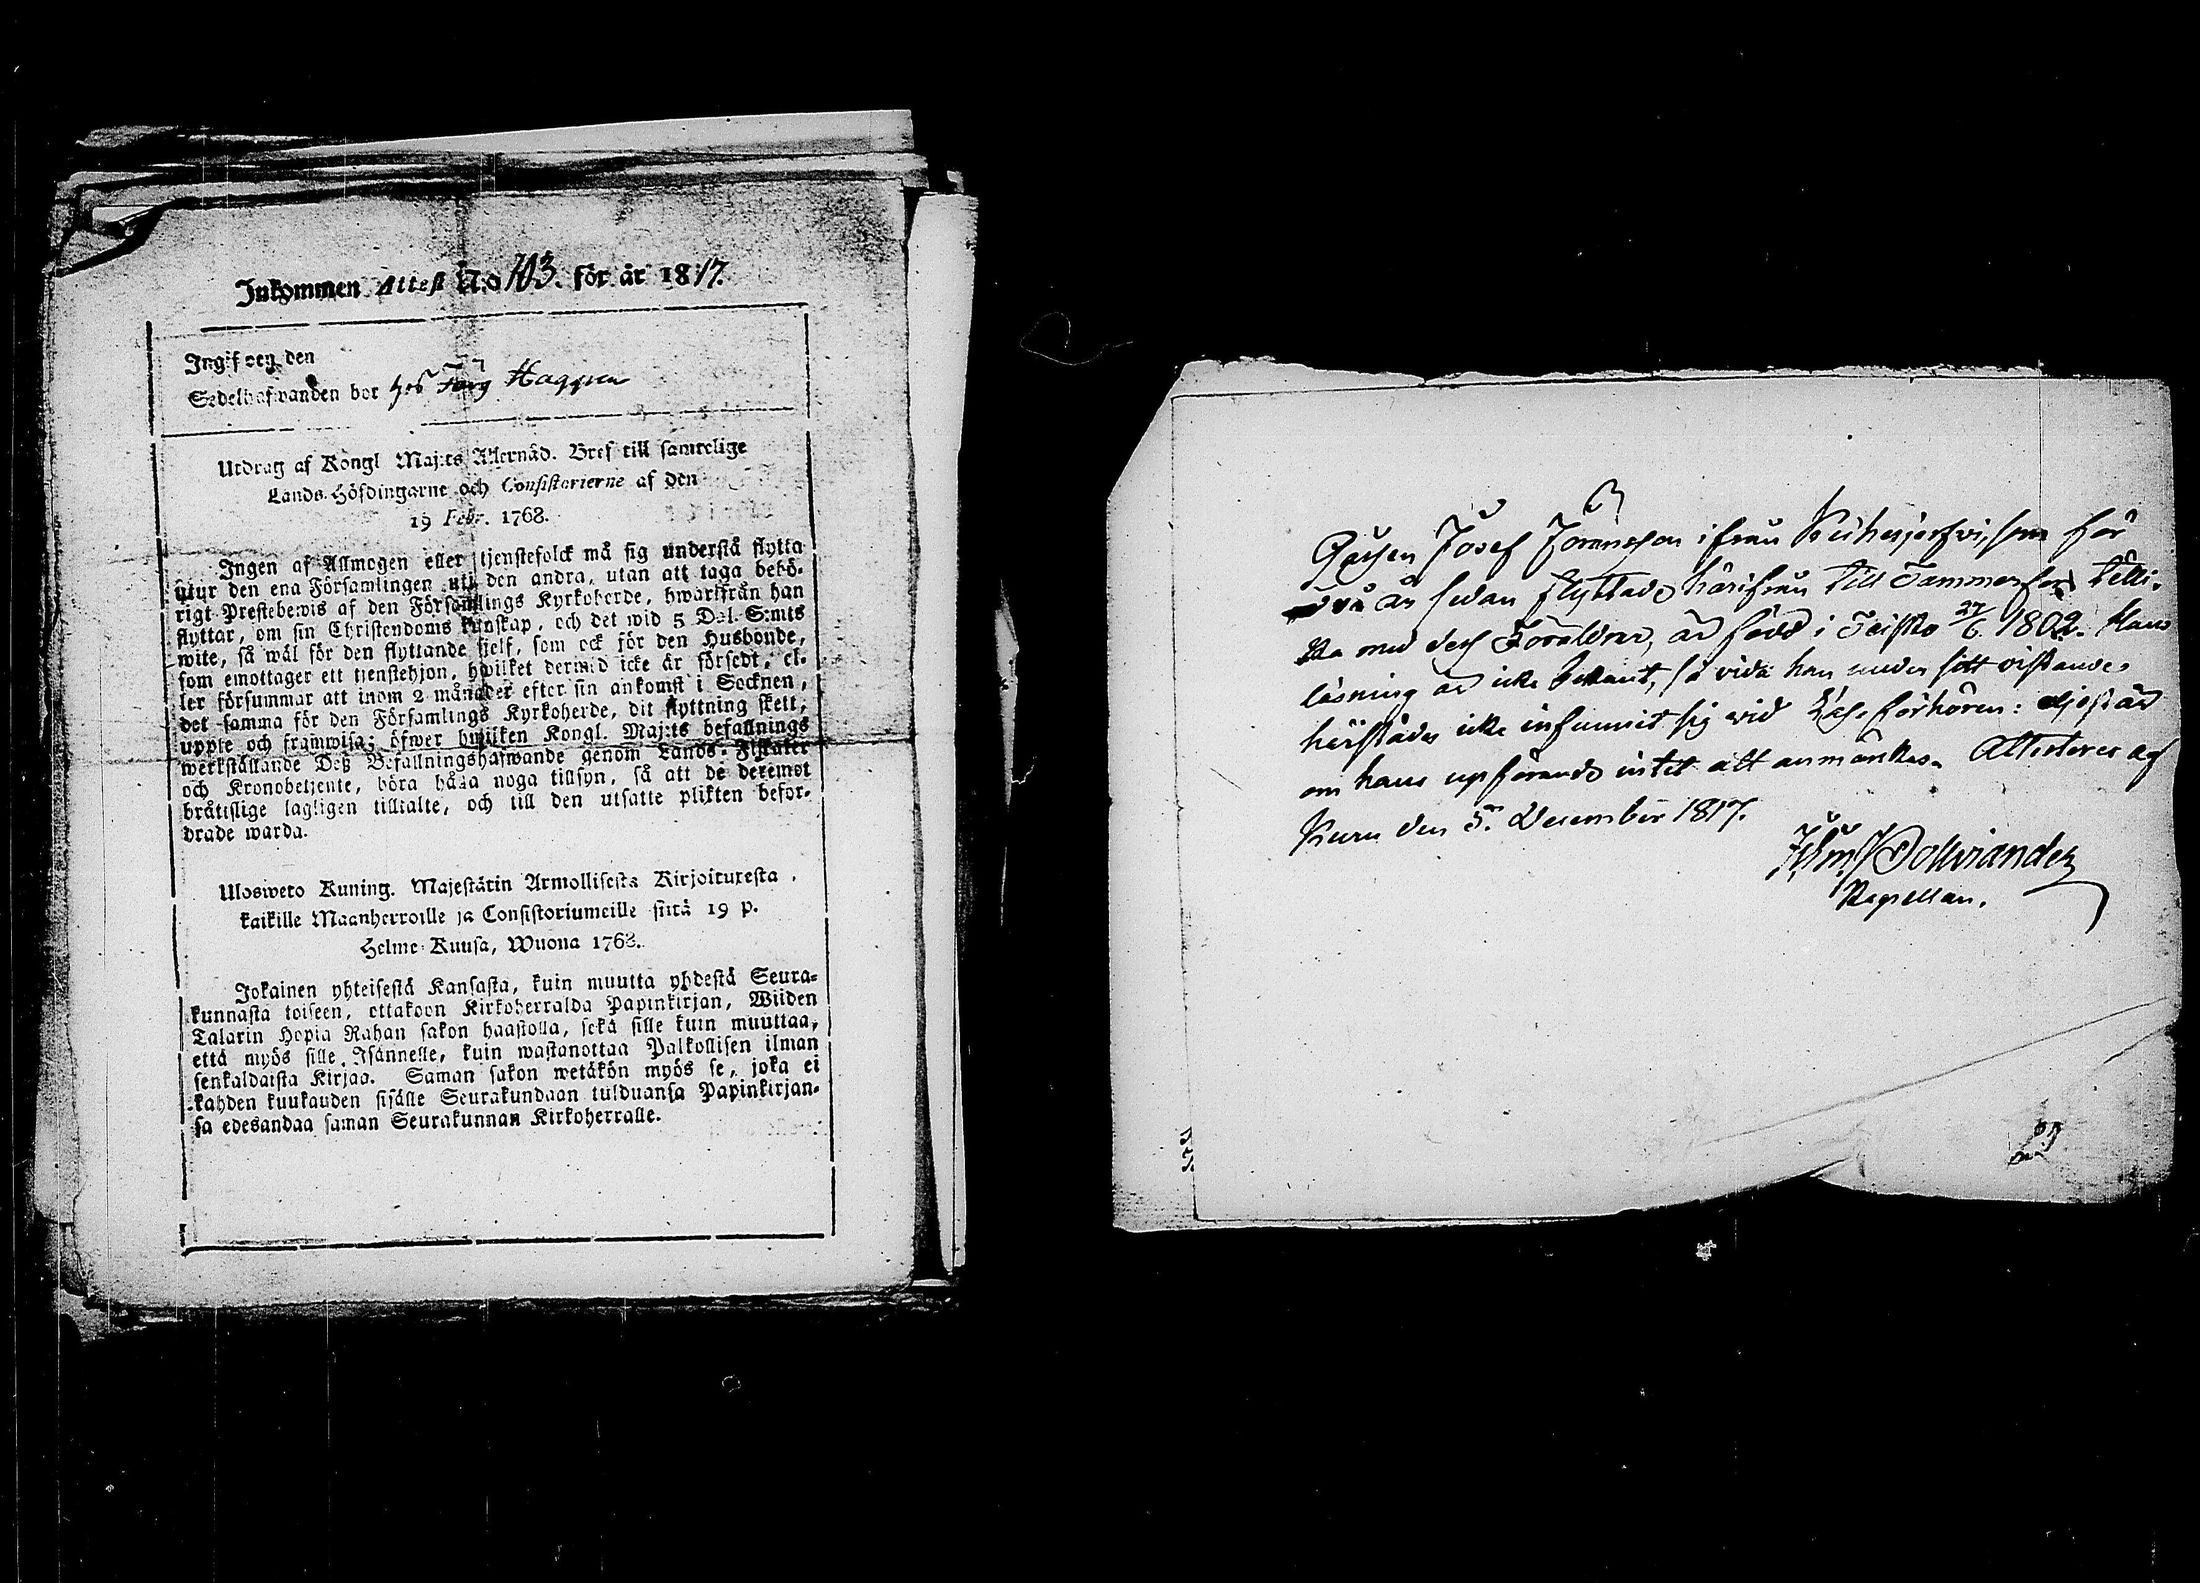 Inkommen Attest N:o 103. för år 1817.
Ingifven den
Sedelhafwanden bor hos Törg Haggren
Utdrag af Kongl Maj:ts Allernåd. Bref till samtelige
Lands-Höfdingarne och Consistorierne af den
19 Febr. 1768.
Ingen af Allmogen eller tjenstefolck må sig understå flytta
utur den ena Församlingen uti den andra, utan att taga behö-
rigt Prestebewis af den Församlings Kyrkoherde, hwarifrån han
flyttar, om sin Christendoms kunskap, och det wid 5 Dal. S:mts
wite, så wäl för den flyttande sjelf, som ock för den Husbonde,
som emottager ett tjenstehjon, hwilket dermid icke är försedt, el-
ler försummar att inom 2 månader efter sin ankomst i Socknen,
det samma för den Församlings Kyrkoherde, dit flyttning skett,
uppte och framwisa; öfwer hwilken Kongl. Maj:ts befallnings
werkställande Deß Befallningshafwande genom Lands-Fiskaler
och Kronobetjente, böra hålla noga tillsyn, så att de deremot
bråttslige lagligen tilltalte, och till den utsatte plikten befor-
drade warda.
Ulosweto Kuning. Majestätin Armollisesta Kirjoituresta,
kaikille Maanherroille ja Consistoriumeille siitä 19 p.
Helme-Kuusa, Wuona 1768.
Jokainen yhteisestä Kansasta, kuin muutta yhdestä Seura-
kunnasta toiseen, ottakoon Kirkoherralda Papinkirjan, Wiiden
Talarin Hopia Rahan sakon haastolla, sekä sille kuin muuttaa,
että myös sille Isännelle, kuin wastanottaa Palkollisen ilman
senkaldaista Kirjaa. Saman sakon wetäkön myös se, joka ei
kahden kuukauden sisälle Seurakundaan tulduansa Papinkirjan-
sa edesandaa saman Seurakunnan Kirkoherralle.
Gåssen Josef Jöransson ifrån Keihesjerfvi, som för
två år sedan flyttade härifrån till Tammerfors tilli-
ka med des Föräldrar, är född i Teisko 27/6 1802. Hans
läsning är icke bekant, så vida han under sitt vistande
härstädes icke infunnit sig wid Läse förhören: eljest är
om hans upförande intet att anmärkas. Attesteres af
Kuru den 5. December 1817.
Kapellan.